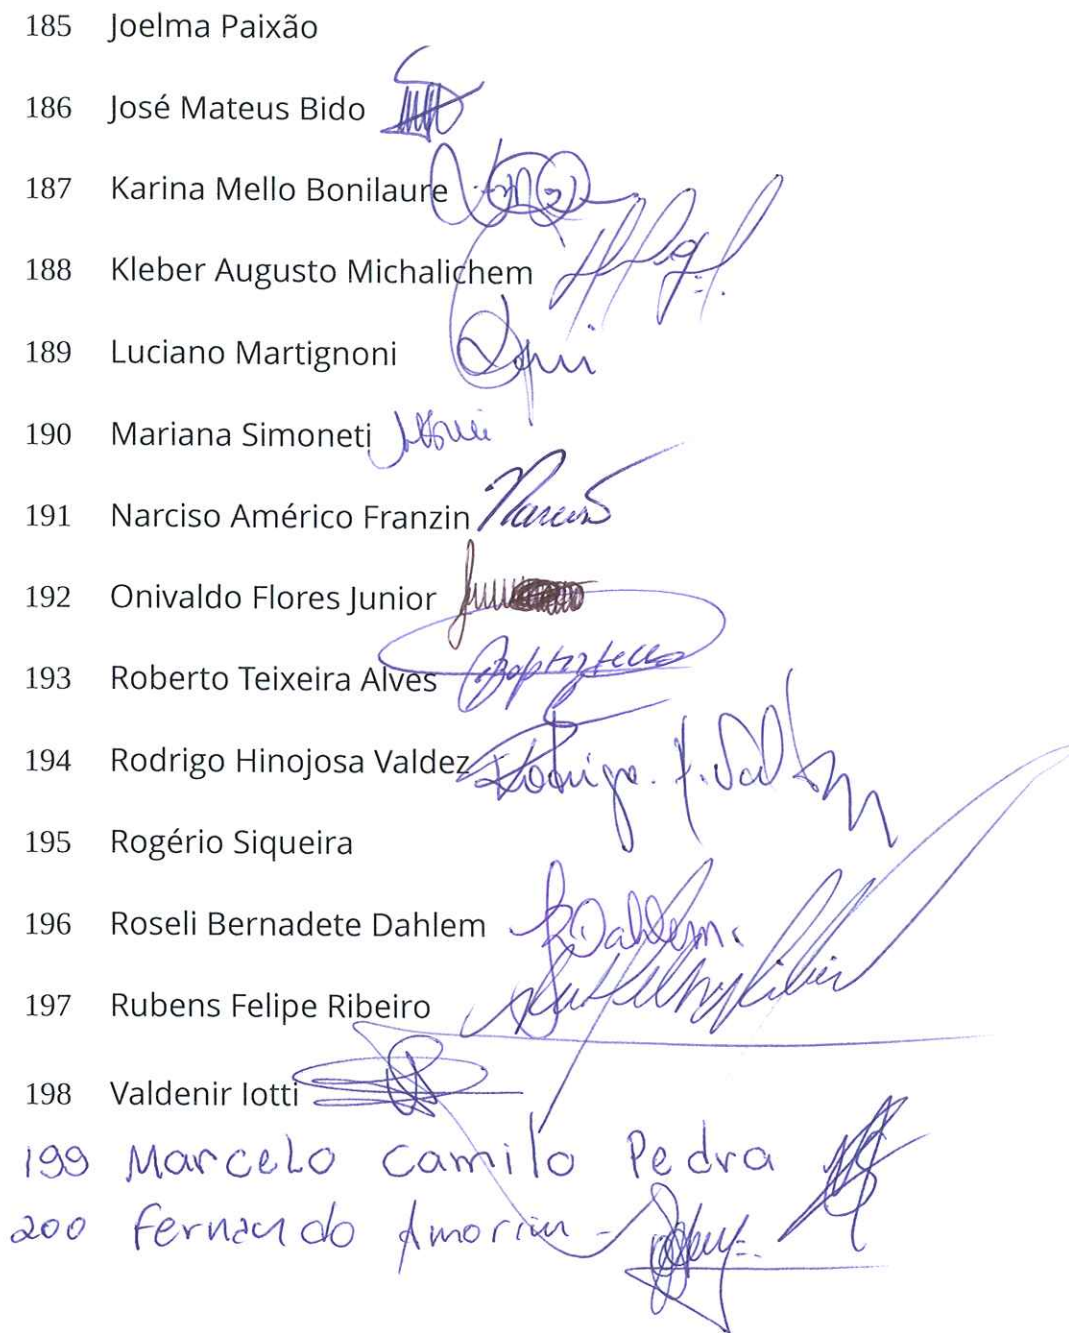 185 Joelma Paixão
186 José Mateus Bido
187 Karina Mello Bonilaure
188 Kleber Augusto Michalichem
189 Luciano Martignoni
190 Mariana Simoneti
191 Narciso Américo Franzin
192 Onivaldo Flores Junior
193 Roberto Teixeira Alves
194 Rodrigo Hinojosa Valdez Rodrigo.
195 Rogério Siqueira
196 Roseli Bernadete Dahlem RDahlem.
197 Rubens Felipe Ribeiro
198 Valdenir Iotti
199 Marcelo Camilo Pedra
200 Fernando Amorim